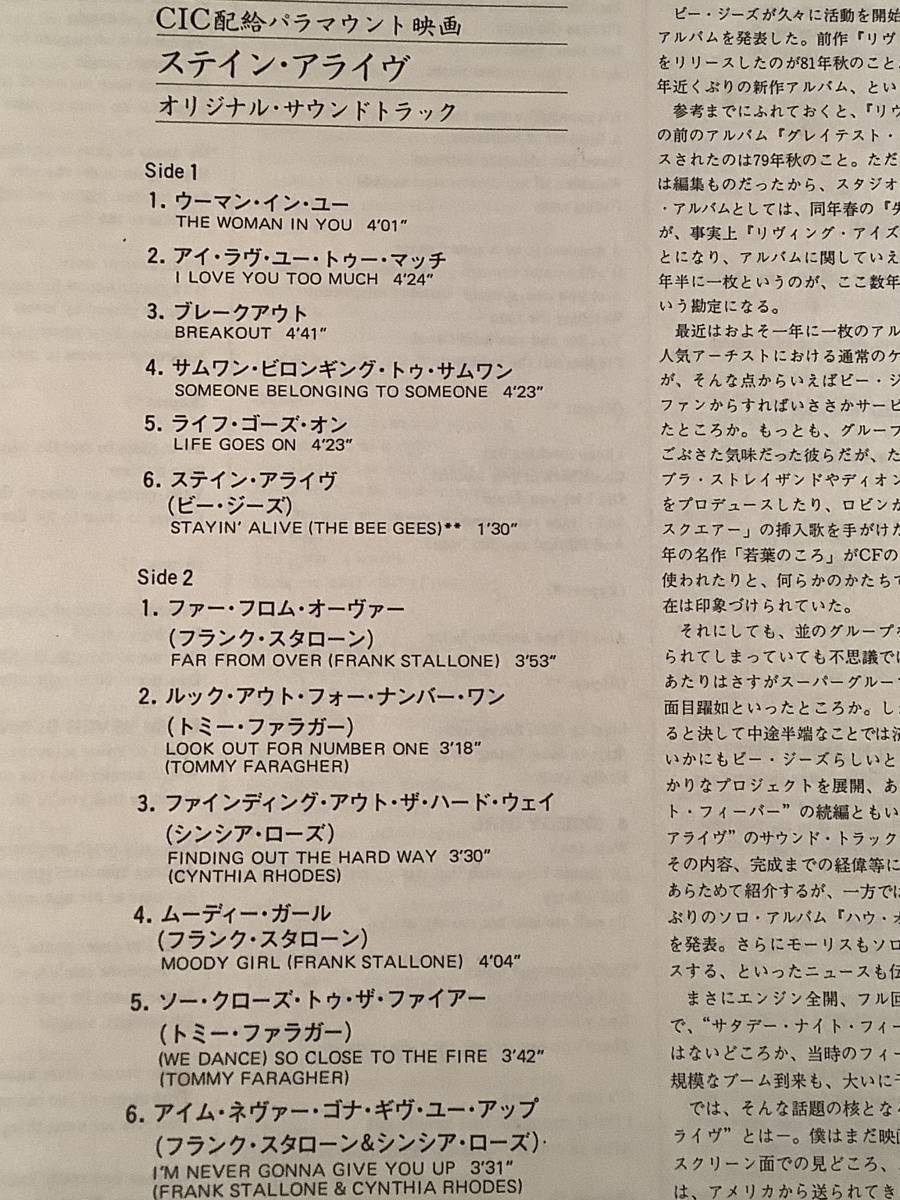 CIC配給パラマウント映画
ステイン・アライヴ
オリジナル・サウンドトラック
Side 1
1. ウーマン・イン・ユー
THE WOMAN IN YOU 4'01"
2. アイ・ラヴ・ユー・トゥー・マッチ
I LOVE YOU TOO MUCH 4'24"
3. ブレークアウト
BREAKOUT 4'41"
4. サムワン・ビロンギング・トゥ・サムワン
SOMEONE BELONGING TO SOMEONE 4'23"
5. ライフ・ゴーズ・オン
LIFE GOES ON 4'23"
6. ステイン・アライヴ
(ビー・ジーズ)
STAYIN' ALIVE (THE BEE GEES)** 1'30"
Side 2
1. ファー・フロム・オーヴァー
(フランク・スタローン)
FAR FROM OVER (FRANK STALLONE) 3'53"
2. ルック・アウト・フォー・ナンバー・ワン
(トミー・ファラガー)
LOOK OUT FOR NUMBER ONE 3'18"
(TOMMY FARAGHER)
3. ファインディング・アウト・ザ・ハード・ウェイ
(シンシア・ローズ)
FINDING OUT THE HARD WAY 3'30"
(CYNTHIA RHODES)
4. ムーディー・ガール
(フランク・スタローン)
MOODY GIRL (FRANK STALLONE) 4'04"
5. ソー・クローズ・トゥ・ザ・ファイアー
(トミー・ファラガー)
(WE DANCE) SO CLOSE TO THE FIRE 3'42"
(TOMMY FARAGHER)
6. アイム・ネヴァー・ゴナ・ギヴ・ユー・アップ
(フランク・スタローン&シンシア・ローズ)
I'M NEVER GONNA GIVE YOU UP 3'31"
(FRANK STALLONE & CYNTHIA RHODES)
ビー・ジーズが久々に活動を開始
アルバムを発表した。前作『リヴ
をリリースしたのが81年秋のこと。
年近くぶりの新作アルバム、とい
参考までにふれておくと、『リヴ
の前のアルバム『グレイテスト・
スされたのは79年秋のこと。ただ
は編集ものだったから、スタジオ
・アルバムとしては、同年春の『失
が、事実上『リヴィング・アイズ
とになり、アルバムに関していえ
年半に一枚というのが、ここ数年
いう勘定になる。
最近はおよそ一年に一枚のアル
人気アーチストにおける通常のケ
が、そんな点からいえばビー・ジ
ファンからすればいささかサービ
たところか。もっとも、グループ
ごぶさた気味だった彼らだが、た
ブラ・ストレイザンドやディオン
をプロデュースしたり、ロビンが
スクエアー」の挿入歌を手がけた
年の名作「若葉のころ」がCFの
使われたりと、何らかのかたちで
在は印象づけられていた。
それにしても、並のグループな
られてしまっていても不思議では
あたりはさすがスーパーグルー
面目躍如といったところか。し
ると決して中途半端なことでは済
いかにもビー・ジーズらしいと
かりなプロジェクトを展開、あ
ト・フィーバー”の続編ともい
アライヴ”のサウンド・トラック
その内容、完成までの経偉等に
あらためて紹介するが、一方では
ぶりのソロ・アルバム『ハウ・オ
を発表。さらにモーリスもソロ
スする、といったニュースも伝
まさにエンジン全開、フル回
で、“サタデー・ナイト・フィー
はないどころか、当時のフィー
規模なブーム到来も、大いに
では、そんな話題の核となる
ライヴ”とは―。僕はまだ映画
スクリーン面での見どころ、
は、アメリカから送られてき